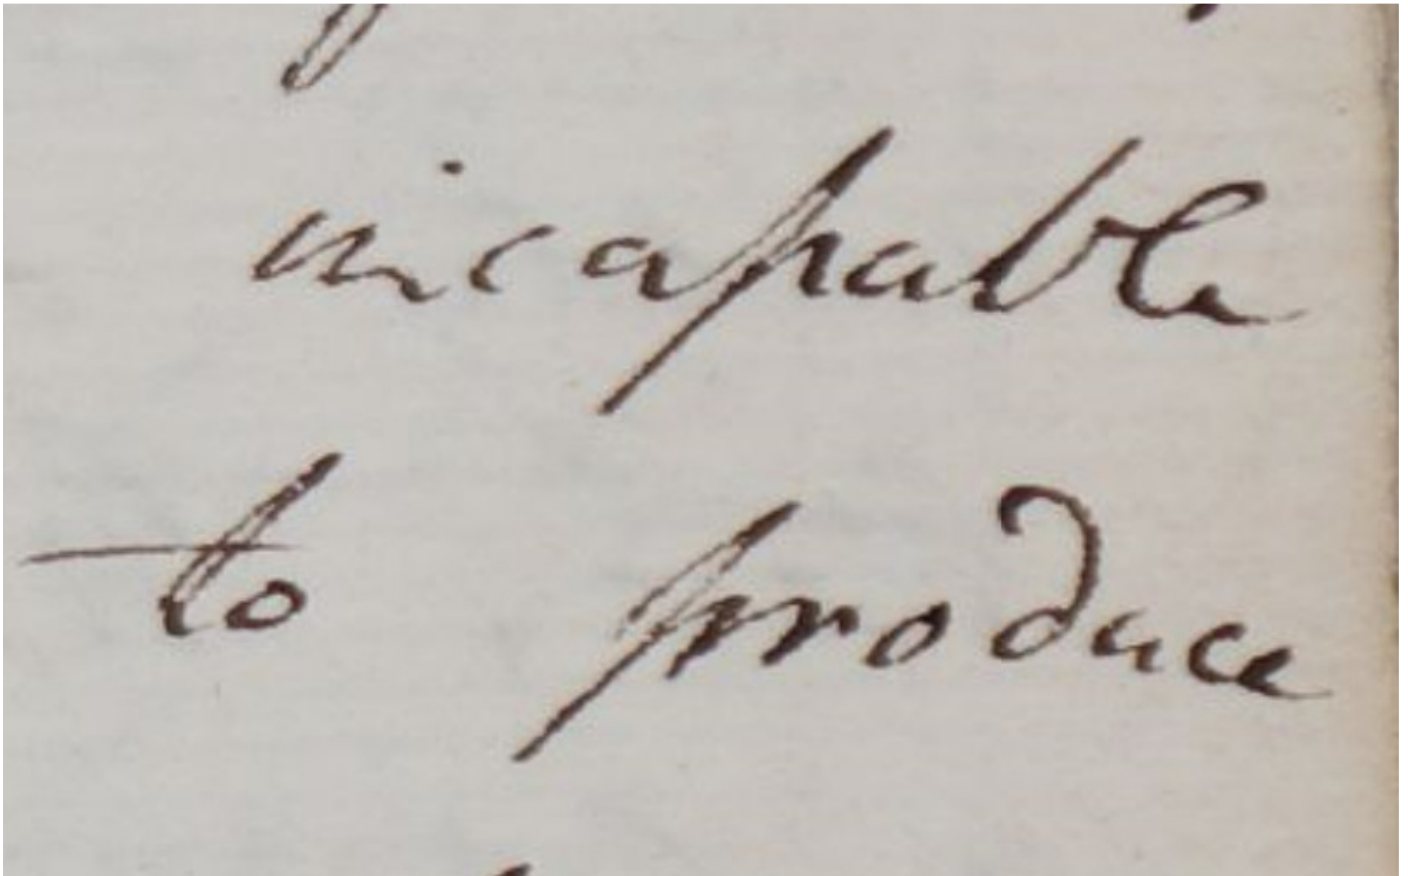 incapable
to produce